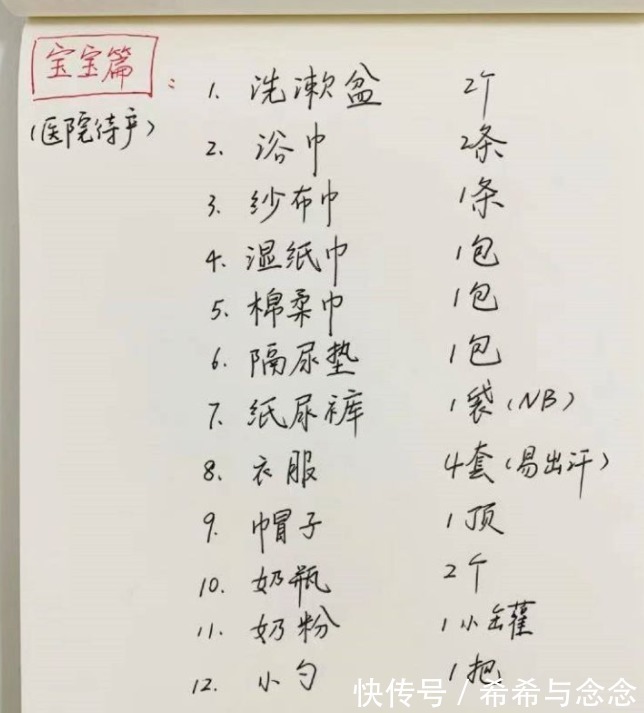 宝宝篇：
（医院待产）
1. 洗漱盆 2个
2. 浴巾 2条
3. 纱布巾 1条
4. 湿纸巾 1包
5. 棉柔巾 1包
6. 隔尿垫 1包
7. 纸尿裤 1袋（NB）
8. 衣服 4套（易出汗）
9. 帽子 1顶
10. 奶瓶 2个
11. 奶粉 1小罐
12. 小勺 1把
快传号 / 希希与念念